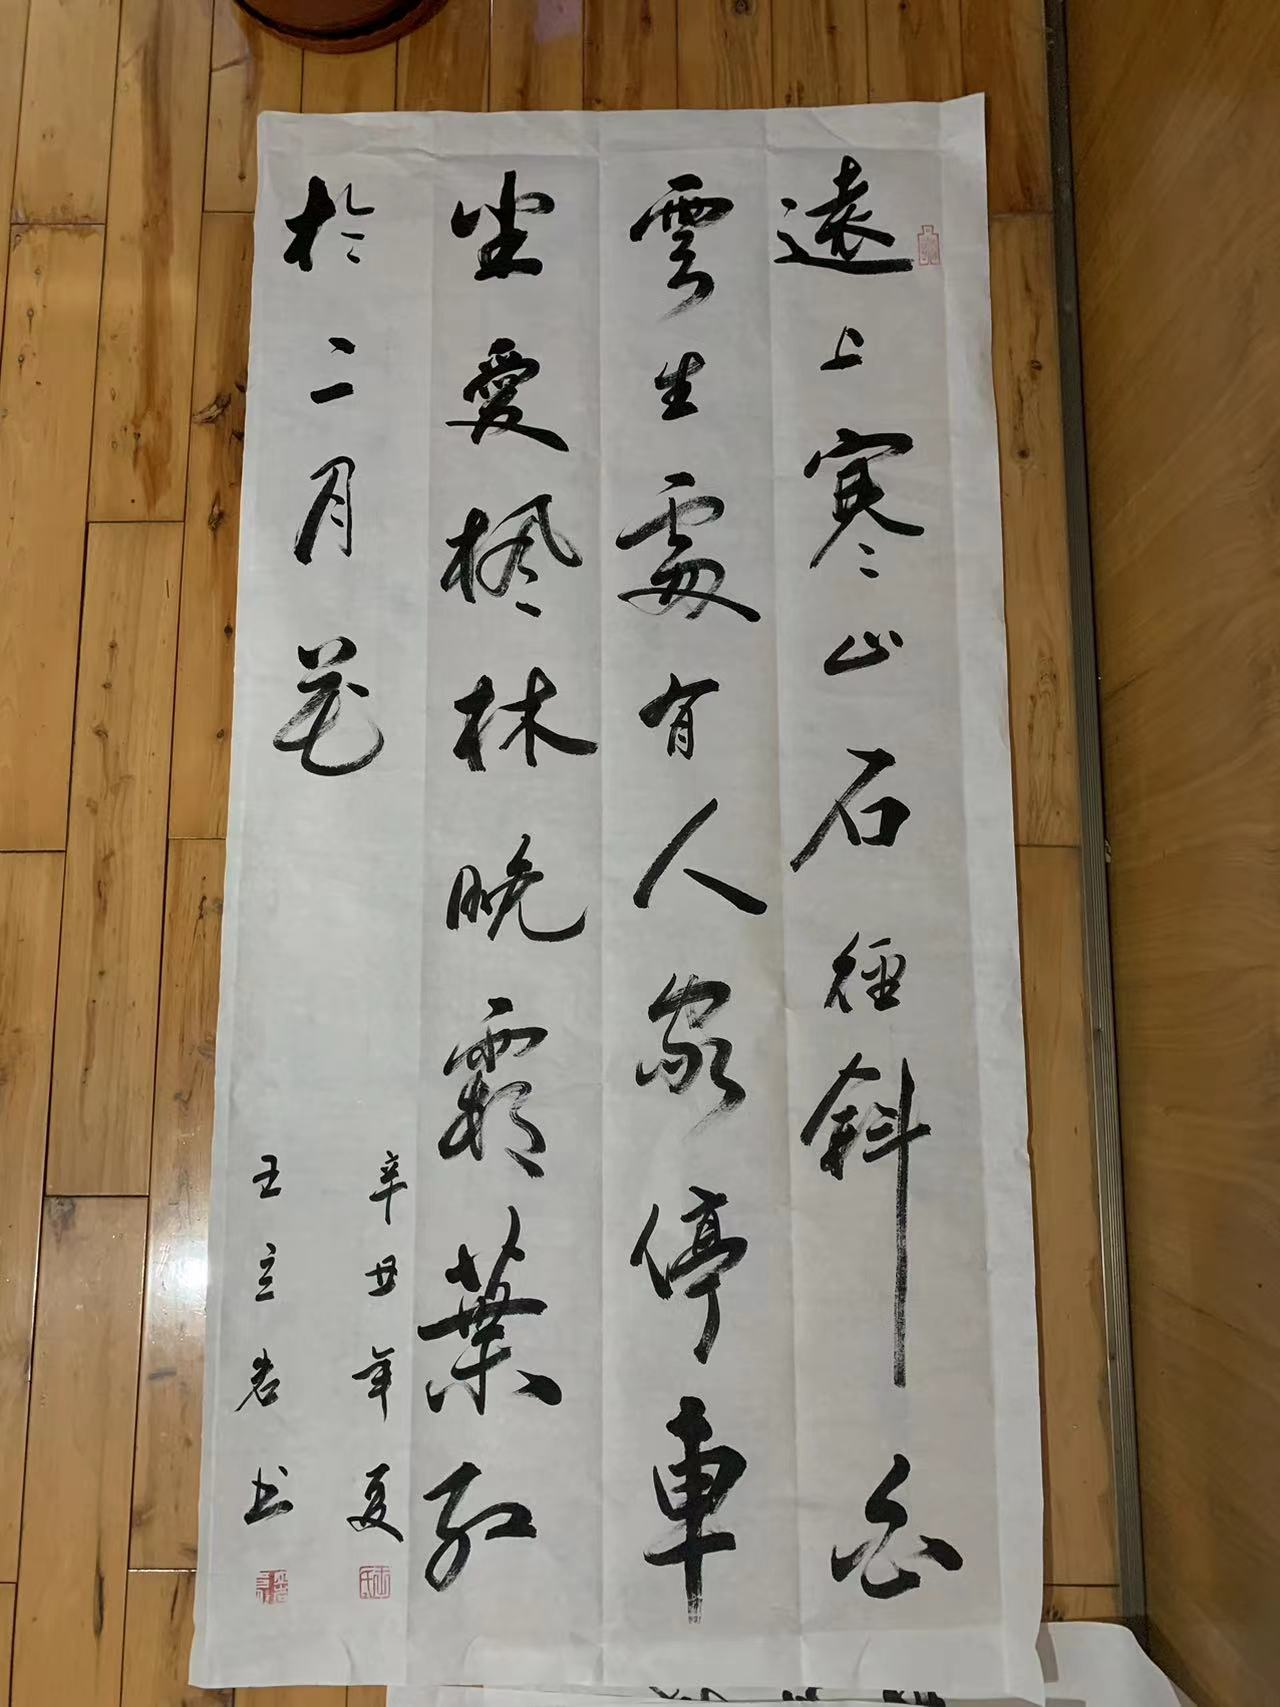 遠上寒山石徑斜白
雲生處有人家停車
坐愛楓林晚霜葉紅
於二月花
辛丑年夏
王立岩书